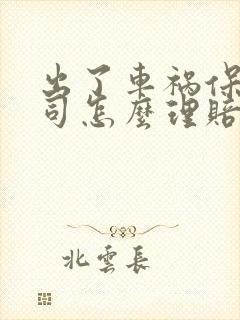 出了車禍保
司怎麼理賠
北雲長